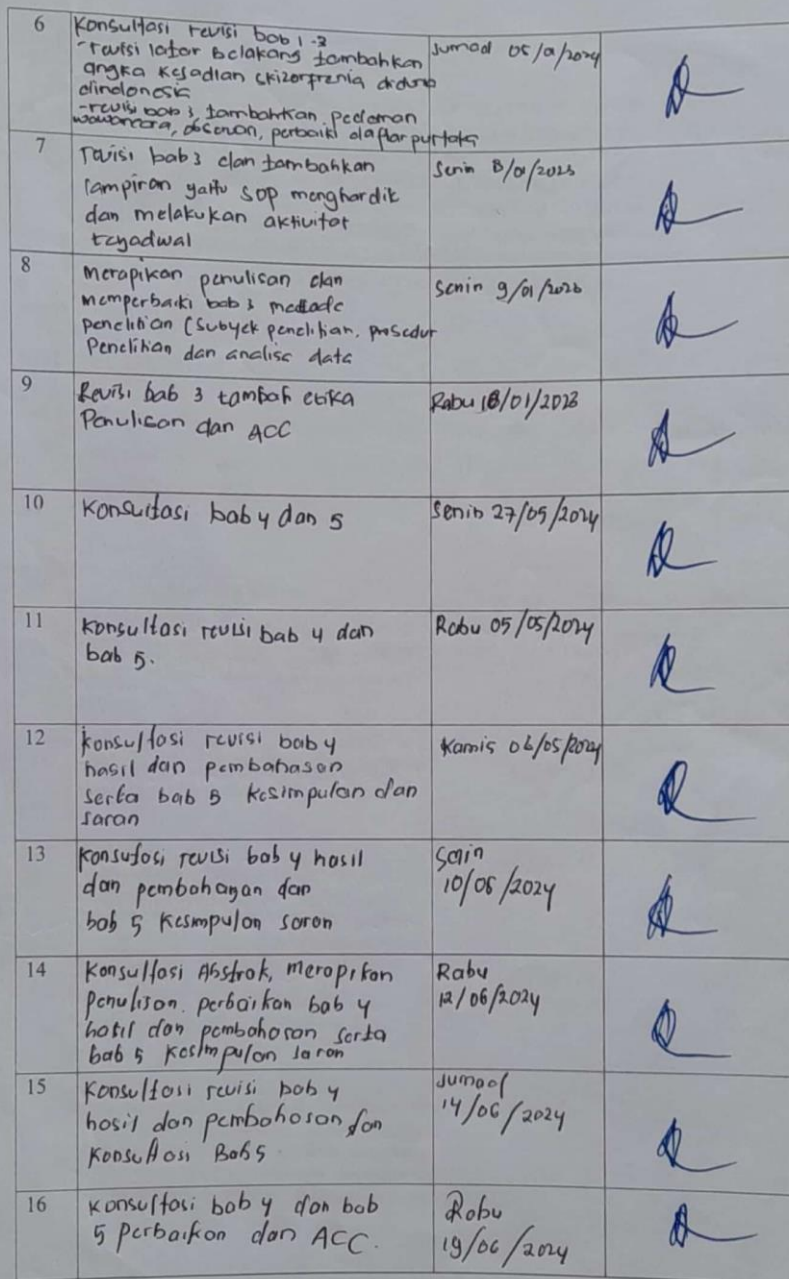 6
Konsultasi revisi bab 1-3
-revisi latar belakang tambahkan
angka kejadian skizofrenia didunia
diindonesia
-revisi bab 3 tambahkan pedoman
wawancara, observan, perbaiki daftar pustaka
Jumad 05/01/2024
7
revisi bab 3 dan tambahkan
lampiran yaitu SOP menghardik
dan melakukan aktivitas
terjadwal
Senin 8/01/2023
8
merapikan penulisan dan
memperbaiki bab 3 metode
penelitian (Subyek penelitian, prosedur
Penelitian dan analisa data
Senin 9/01/2023
9
Revisi bab 3 tambah etika
Penulisan dan ACC
Rabu 18/01/2023
10
Konsultasi bab 4 dan 5
Senin 27/05/2024
11
Konsultasi revisi bab 4 dan
bab 5.
Rabu 05/05/2024
12
konsultasi revisi bab 4
hasil dan pembahasan
serta bab 5 kesimpulan dan
saran
Kamis 06/05/2024
13
Konsultasi revisi bab 4 hasil
dan pembahasan dan
bab 5 Kesimpulan saran
Senin
10/06/2024
14
Konsultasi Abstrak, merapikan
penulisan. perbaikan bab 4
hasil dan pembahasan serta
bab 5 kesimpulan saran
Rabu
12/06/2024
15
Konsultasi revisi bab 4
hasil dan pembahasan dan
Konsultasi Bab 5
Jumad
14/06/2024
16
Konsultasi bab 4 dan bab
5 perbaikan dan ACC.
Rabu
19/06/2024